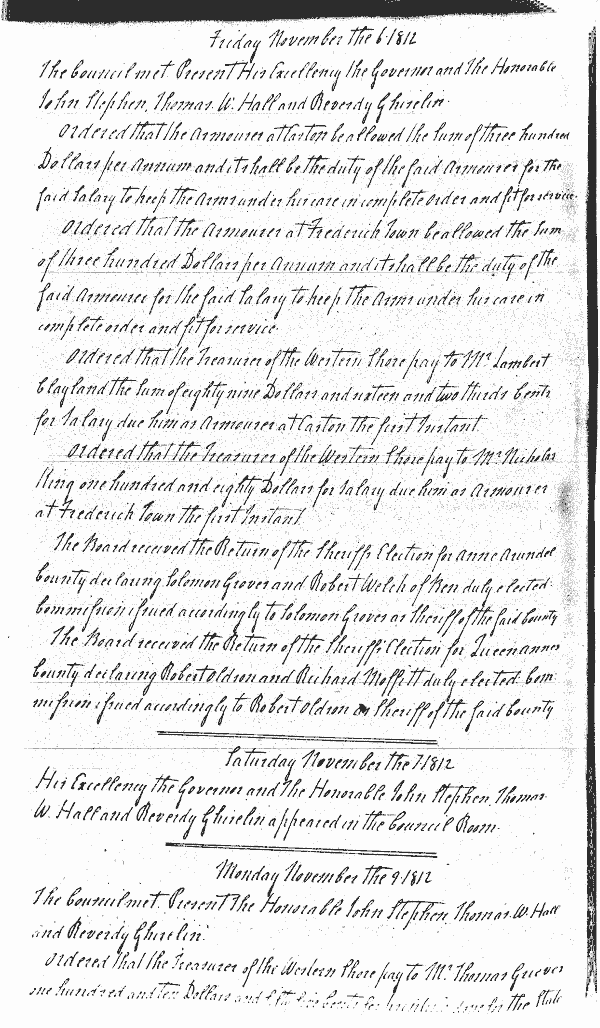 Friday November the 6 1812
The Council met Present His Excellency the Governor and The Honorable
John Stephen, Thomas W. Hall and Reverdy Ghiselin
Ordered that the Armourer at Easton be allowed the Sum of three hundred
Dollars per Annum and it shall be the duty of the said Armourer for the
said Salary to keep the Arms under his care in complete order and fit for service.
Ordered that the Armourer at Frederick Town be allowed the Sum
of three hundred Dollars per Annum and it shall be the duty of the
said Armourer for the said Salary to keep the Arms under his care in
complete order and fit for service
Ordered that the Treasurer of the Western Shore pay to Mr. Lambert
Clayland the Sum of eighty nine Dollars and sixteen and two thirds Cents
for Salary due him as Armourer at Easton the first Instant.
Ordered that the Treasurer of the Western Shore pay to Mr. Nicholas
King one hundred and eighty Dollars for Salary due him as Armourer
at Frederick Town the first Instant
The Board received the Return of the Sheriffs Election for Anne Arundel
County declaring Solomon Groves and Robert Welch of Ben duly elected
Commission issued accordingly to Solomon Groves as Sheriff of the said County
The Board received the Return of the Sheriffs Election for Queen annes
County declaring Robert Oldson and Richard Moffitt duly elected. Com
mission issued accordingly to Robert Oldson as Sheriff of the said County
Saturday November the 7 1812
His Excellency the Governor and The Honorable John Stephen, Thomas
W. Hall and Reverdy Ghiselin appeared in the Council Room
Monday November the 9 1812
The Council met. Present The Honorable John Stephen, Thomas W. Hall
and Reverdy Ghiselin.
Ordered that the Treasurer of the Western Shore pay to Mr. Thomas Grieves
one hundred and ten Dollars and Cents for done for the State